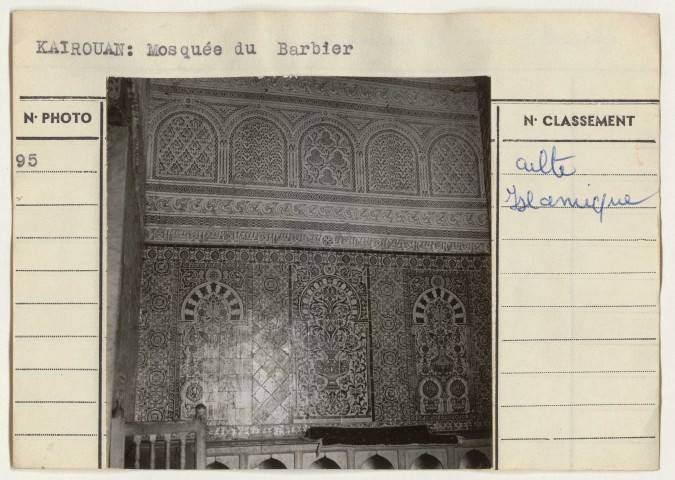 KAIROUAN: Mosquée du Barbier
N° PHOTO
95
N° CLASSEMENT
culte
Islamique